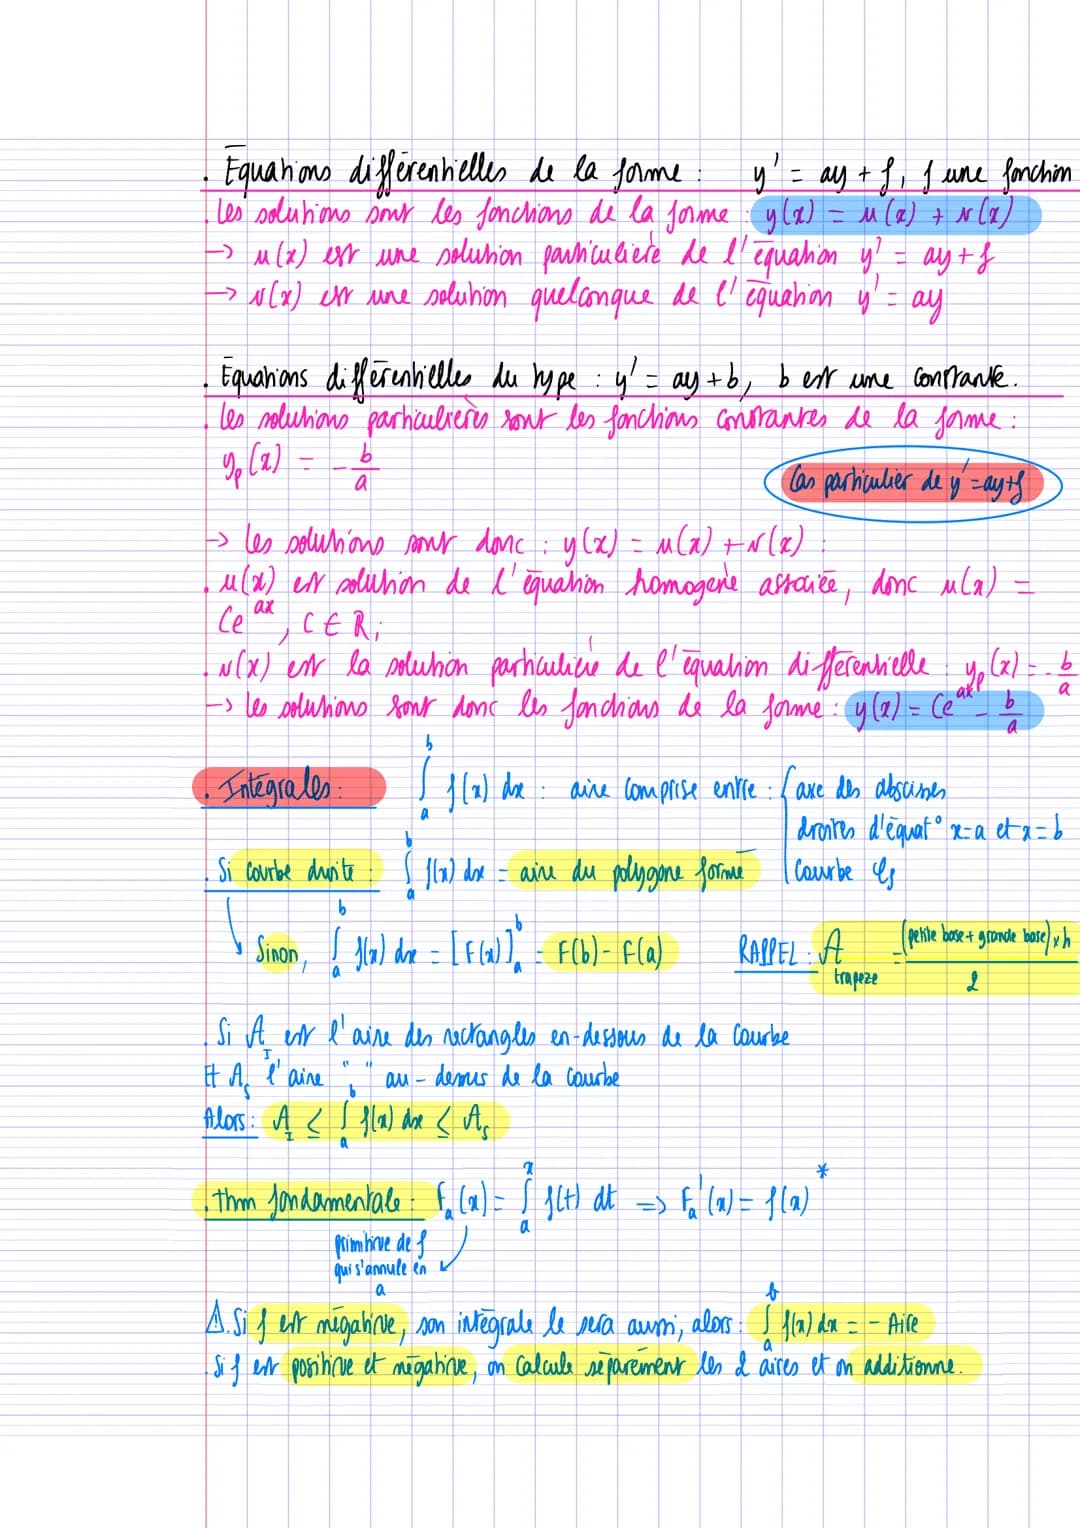 . Equations différentielles de la forme : y' = ay + f, f une fonction
. Les solutions sont les fonctions de la forme : y(x) = u(x) + v(x)
→ u(x) est une solution particulière de l'équation y' = ay + f
→ v(x) est une solution quelconque de l'équation y' = ay
. Equations différentielles du type : y' = ay + b, b est une constante.
. Les solutions particulières sont les fonctions constantes de la forme :
yp(x) = - b/a
Cas particulier de y' = ay+f
→ Les solutions sont donc : y(x) = u(x) + v(x) :
. u(x) est solution de l'équation homogène associée, donc u(x) =
Ce^ax, C ∈ R ;
. v(x) est la solution particulière de l'équation différentielle : yp(x) = - b/a
→ Les solutions sont donc les fonctions de la forme : y(x) = Ce^ax - b/a
. Intégrales : ∫_a^b f(x) dx : aire comprise entre : { axe des abscisses
droites d'équat° x=a et x=b
. Si courbe droite : ∫_a^b f(x) dx = aire du polygone formé
Courbe Cf
↳ Sinon, ∫_a^b f(x) dx = [F(x)]_a^b = F(b) - F(a)
RAPPEL : A trapèze = (petite base + grande base) x h / 2
. Si A_I est l'aire des rectangles en-dessous de la courbe
Et A_s l'aire " " au-dessus de la courbe
Alors : A_I ≤ ∫_a^b f(x) dx ≤ A_s
. Thm fondamentale : F_a(x) = ∫_a^x f(t) dt => F_a'(x) = f(x) *
primitive de f
qui s'annule en
a
⚠. Si f est négative, son intégrale le sera aussi, alors : ∫_a^b f(x) dx = - Aire
. Si f est positive et négative, on calcule séparément les 2 aires et on additionne.